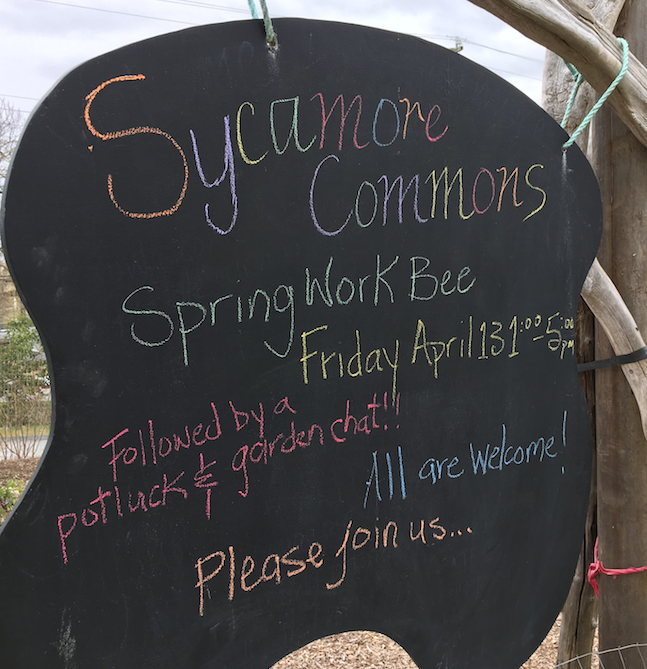 Sycamore
Commons
Spring Work Bee
Friday April 13 1:00-5:00 pm
Followed by a
potluck & garden chat!!
All are welcome!
Please join us...